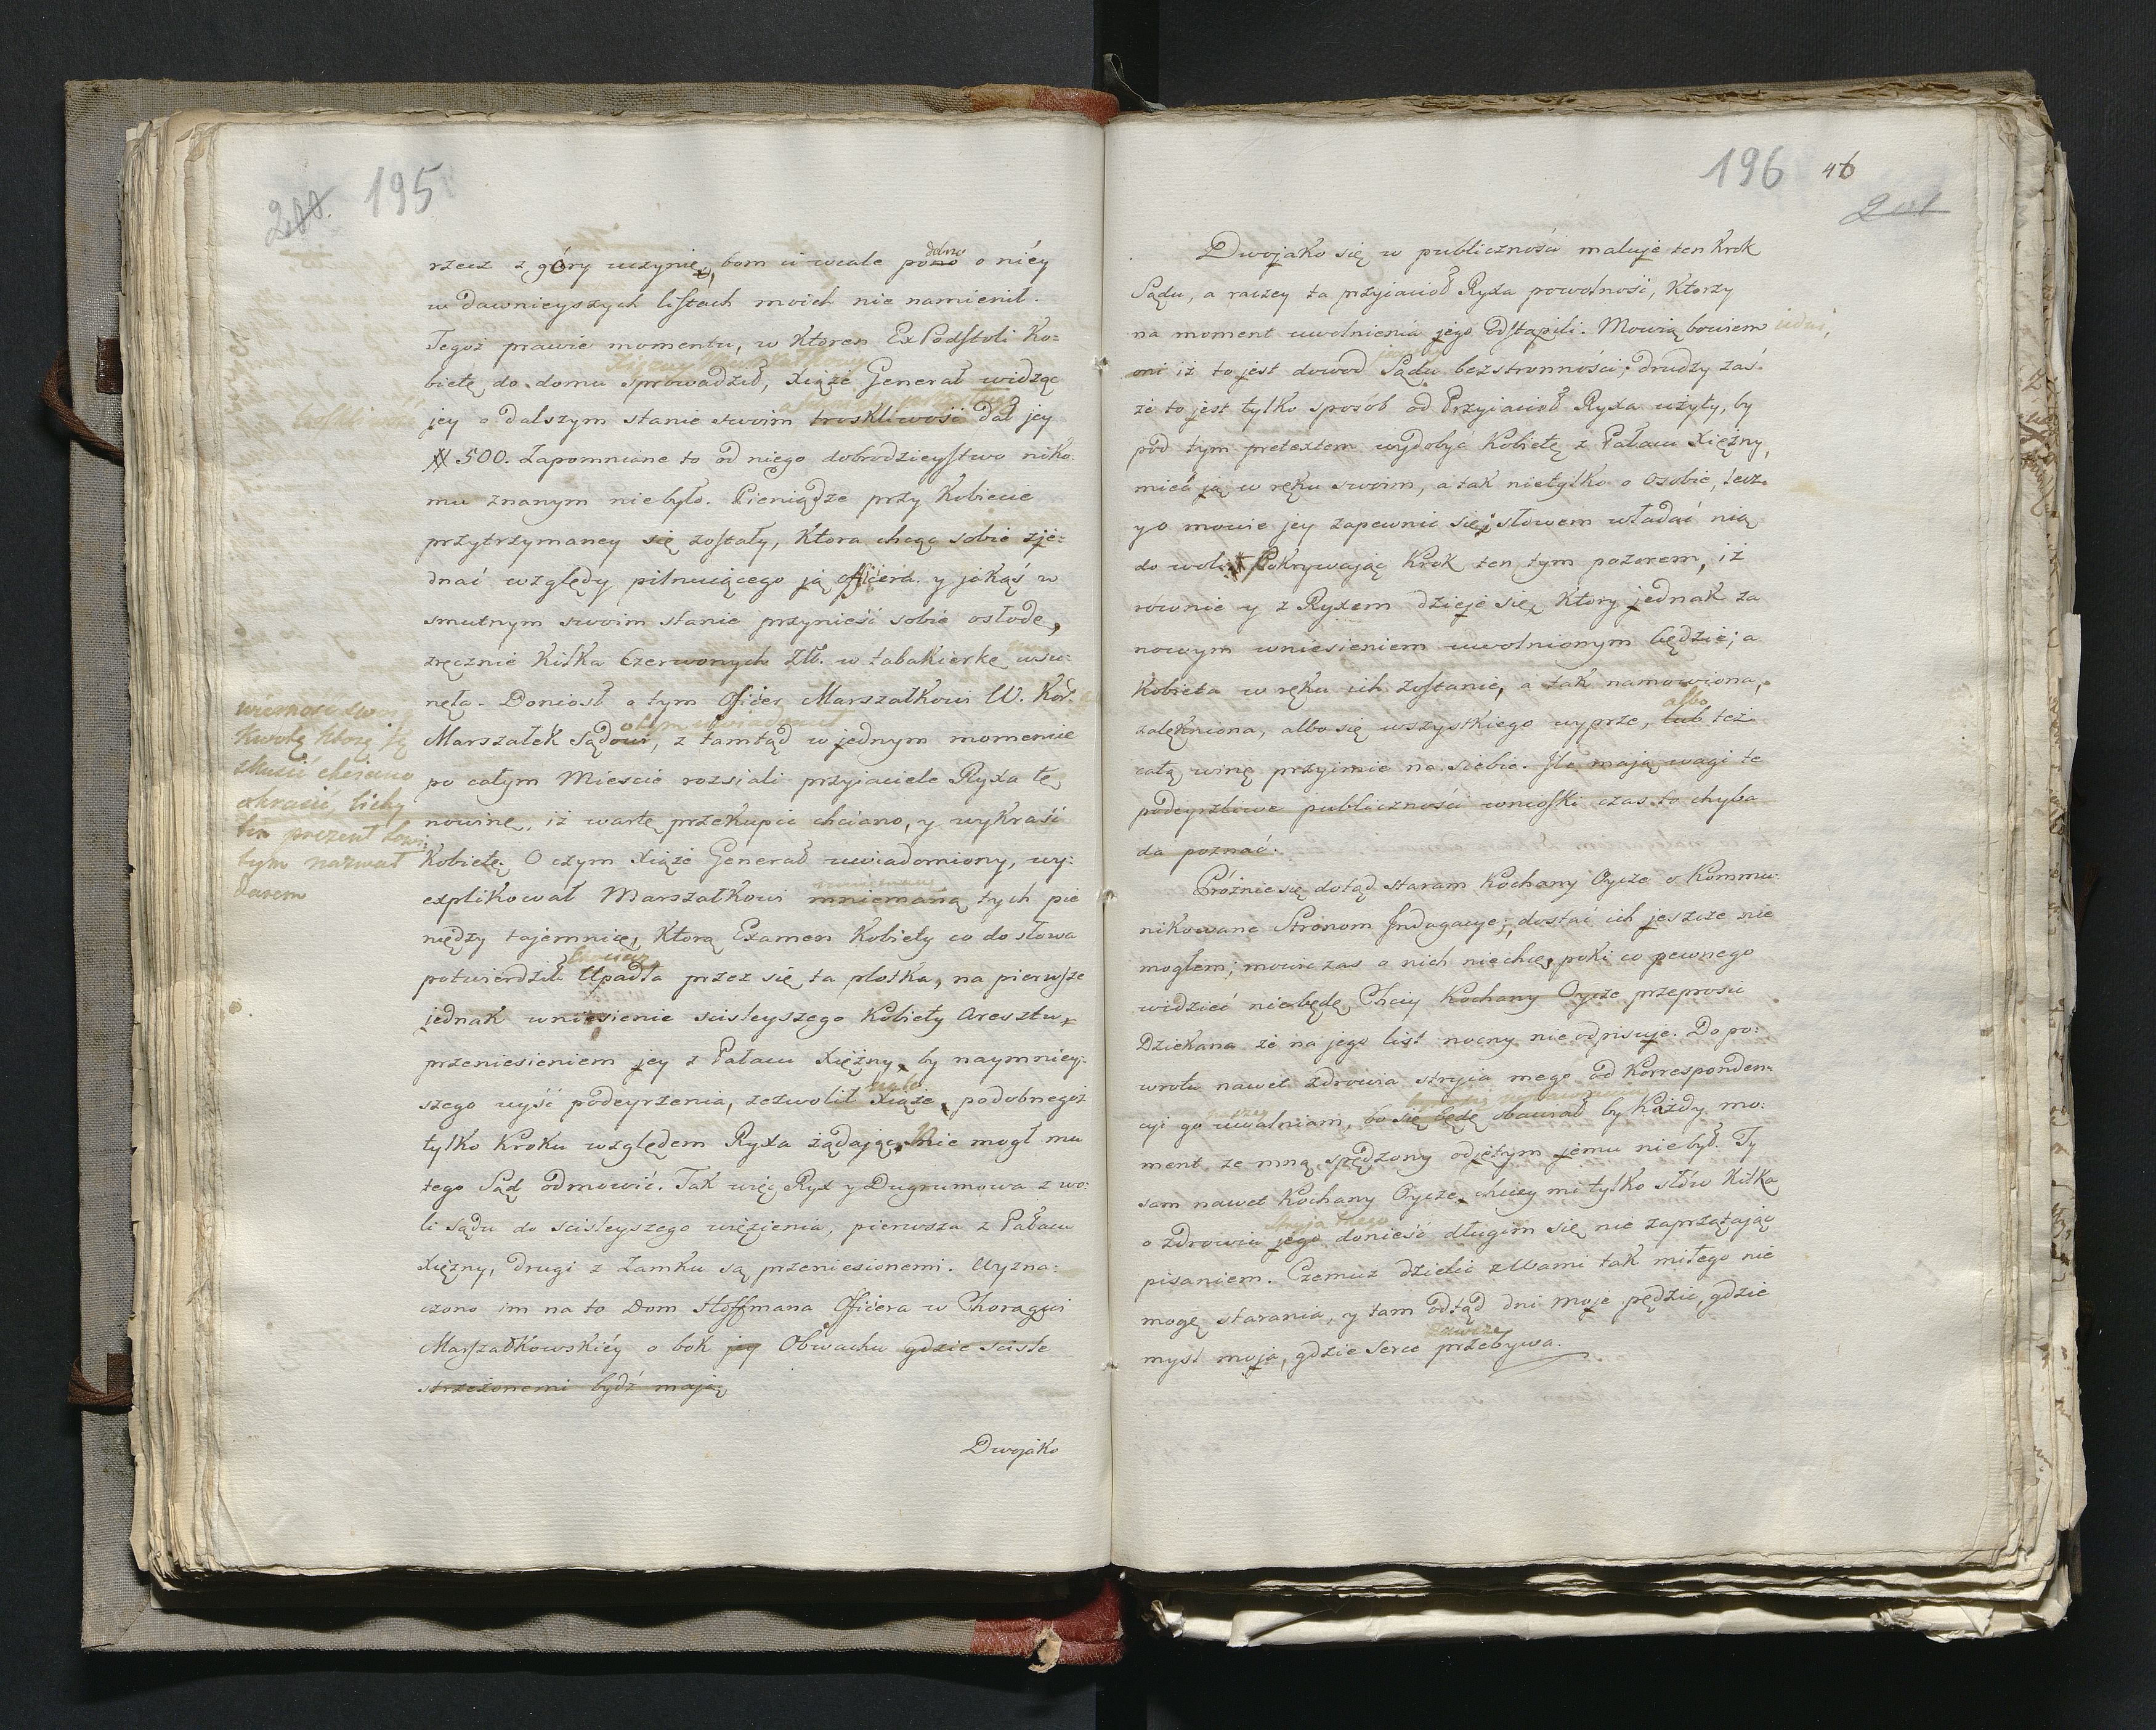 200. 195
rzecz z góry uczynię, bom ci wcale pono o niéy
dobno
w dawnieyszych listach moich nie namienił.
Tegoż prawie momentu, w ktoren Ex Podstoli Ko=
bietę do domu sprowadził, Xiąże Generał widząc
jey o dalszym stanie swoim troskliwość dał jey
## 500. Zapomniane to od niego dobrodzieystwo niko
mu znanym nie było. Pieniądze przy Kobiecie
przytrzymaney się zostały, Ktora chcąc sobie zje=
dnać względy pilnuiącego ją Officera y jakąś w
smutnym swoim stanie przynieść sobie osłodę,
zręcznie Kilka Czerwonych Złł. w tabakierkę wsu=
nęła. Doniosł o tym Officer Marszałkowi W. Kor.
Marszałek Sądowi, z tamtąd w jednym momencie
po całym Mieście rozsiali przyjaciele Ryxa tę
nowinę, iż wartę przekupić chciano, y wykraść
Kobietę. O czym Xiąże Generał uwiadomiony, wy=
explikował Marszałkowi mniemaną tych pie
niędzy tajemnicę, Ktorą Examen Kobiety co do słowa
potwierdził Upadła przez się ta plotka, na pierwsze
jednak wniesienie scisleyszego Kobiety Aresztu,
przeniesieniem jey z Pałacu Xiężny, by naymniey=
szego uyść podeyrzenia, zezwolił Xiąże, podobnegoż
tylko Kroku względem Ryxa żądając, Nie mogł mu
tego Sąd odmowić. Tak więc Ryx y Dugrumowa z wo=
li sądu do scisleyszego więzienia, pierwsza z Pałacu
Xiężny, drugi z Zamku są przeniesionemi. Wyzna=
czono im na to Dom Hoffmana Officera w Chorągwi
Marszałkowskiéy o bok jey Obwachu gdzie scisle
strzeżonemi bydź mają
Dwojako
wierność swoią
Kwotę Ktorą ją
skusić chciano
okrasić, lichy
ten prezent
tym nazwał
darem
196 46
201
Dwojako się w publicznośii maluje ten Krok
Sądu, a raczey ta przyiacioł Ryxa powolność, Ktorzy
na moment uwolnienia jego odstąpili. Mowią bowiem jedni,
oni iż to jest dowod Sądu bezstronności; drudzy zaś
że to jest tylko sposób od Przyiacioł Ryxa użyty, by
pod tym pretextem wydobyć Kobietę z Pałacu Xiężny,
mieć ją w ręku swoim, a tak nietylko o osobie, lecz
y o mowie jey zapewnić się; słowem władać nią
do woli. Pokrywają Krok ten tym pozorem, iż
równie y z Ryxem dzieje się, Ktory jednak za
nowym wniesieniem uwolnionym będzie; a
Kobieta w ręku ich zostanie, a tak namowiona,
zalękniona, albo się wszystkiego wyprze, lub też
albo
całą winę przyimie na siebie. Jle mają wagi te
podeyrzliwe publiczności wnioski czas to chyba
da poznać.
Próżnie się dotąd staram Kochany Oycze o Kommu=
nikowane Stronom Jndagacye; dostać ich jeszcze nie
mogłem; mowić zaś o nich nie chcę, poki co pewnego
widzieć nie będę. Chciy Kochany Oycze przeprosić
Dziekana że na jego list nocny nie odpisuje. Do po=
wrotu nawet zdrowia stryia mego od Korresponden=
cyi go uwalniam, bo się będę obawiał by Każdy mo=
ment ze mną spędzony odjętym jemu nie był. Ty
sam nawet Kochany Oycze, chciey mi tylko słów Kilka
stryja mego
o zdrowiu jego donieść długim się nie zaprzątając
pisaniem. Czemuż dzielić z Wami tak miłego nie
mogę starania, y tam odtąd dni moje pędzić, gdzie
zawsze
myśl moja, gdzie serce przebywa.